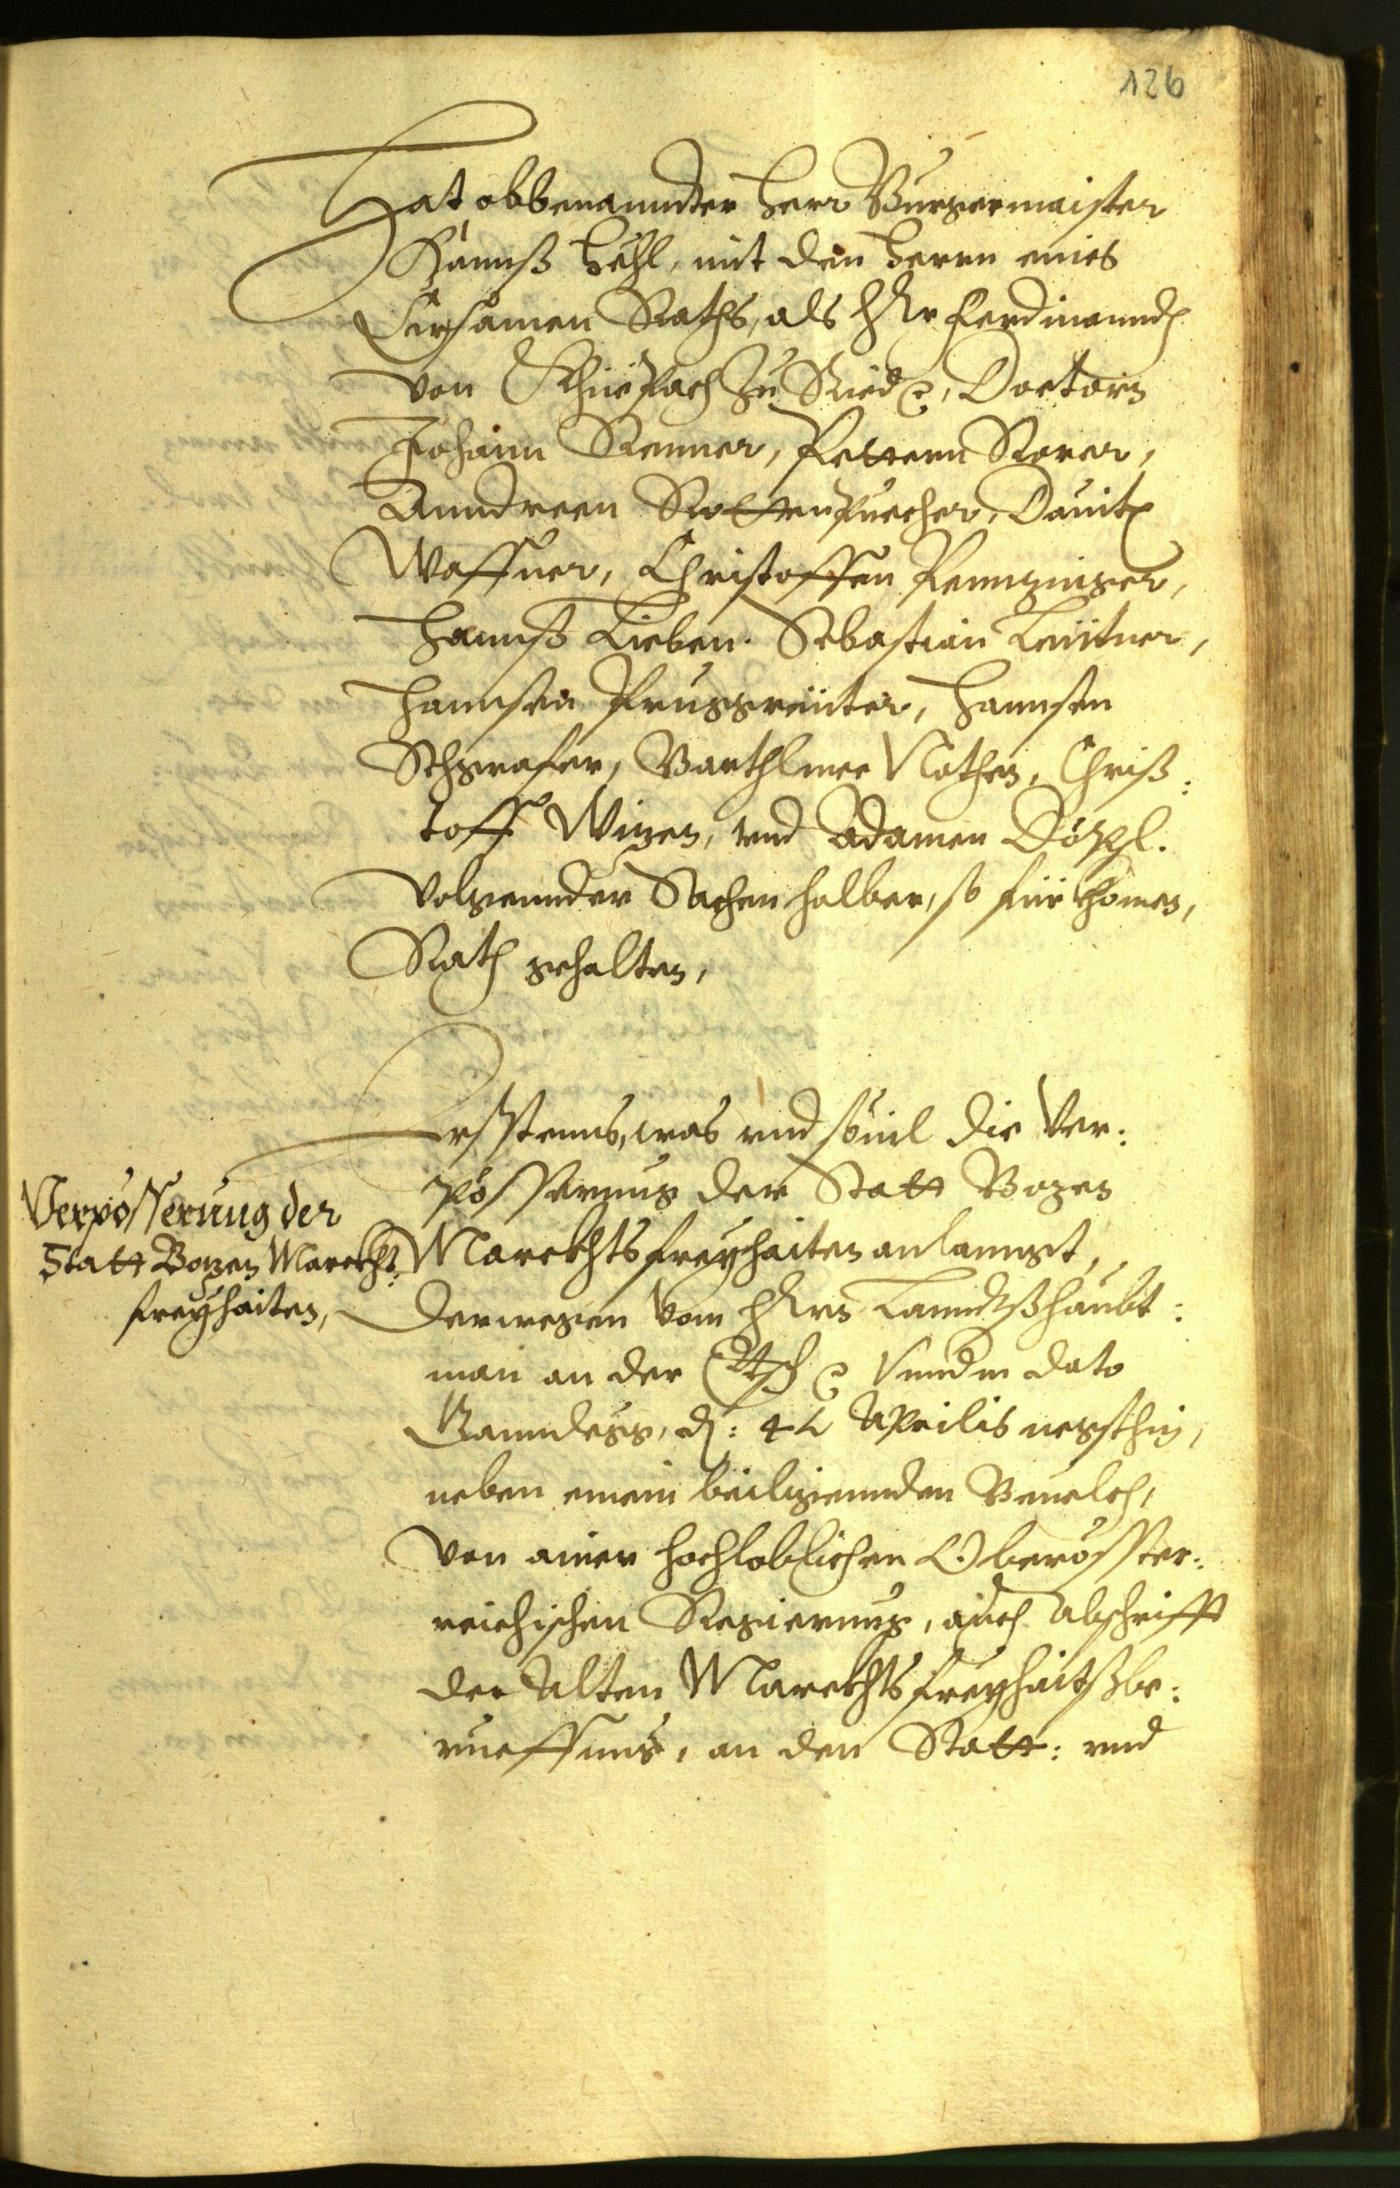 126
Hat obbenanndter Herr Burgermaister
Hannß Hehl, mit den Herrn eines
Ersamen Raths, als Hr Ferdinanndt
von Khüepach zu Ried, Doctorn
Johann Renner, Pettern Rorer,
Anndreen Rottenpuecher, Dauit
Waffner, Christoffen Pemzinger,
Hannß Lieben. Sebastian Leuttner,
Hannsen Pruggreuiter, Hannsen
Schgrafer, Barthlmee Nothen, Chriß:
toff Wizen, vnd Adamen
volgennder Sachen halber, so für khomen,
Rath gehalten,
Erstenns, was vnd souil die Ver:
pösserung der Statt Bozen
Marckhtsfreyhaiten anlanngt,
Verpösserung der
Statt Bozen Marckht:
freyhaiten,
derwegen vom Hrn Lanndtßhaubt:
man an der Etsch vnndm dato
den Aprilis negsthin,
neben einem beiligennden Beuelch,
von ainer hochloblichen Oberösster:
reichischen Regierung, auch Abschrifft
der Alten Marckhtsfreyhaitßbe:
rueffung, an den Statt: vnd